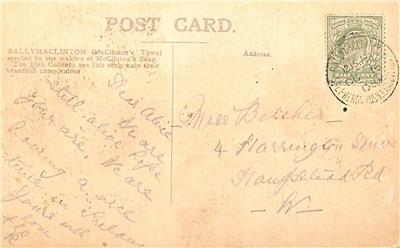 POST CARD.
BALLYMACLINTON (McClinton's Town)
erected by the makers of McClinton's Soap.
The Irish Colleens use this soap note their
beautiful complexions
Address.
HALF PENNY
Dear Alice
We are
still alive hope
you are. We are
having a nice
time in
love
Miss
4 Harrington
Hampstead Rd
W